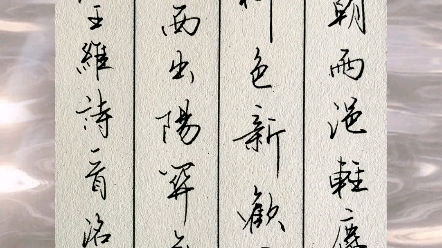 朝雨浥輕塵
柳色新勸
西出陽關無
王維詩首洛